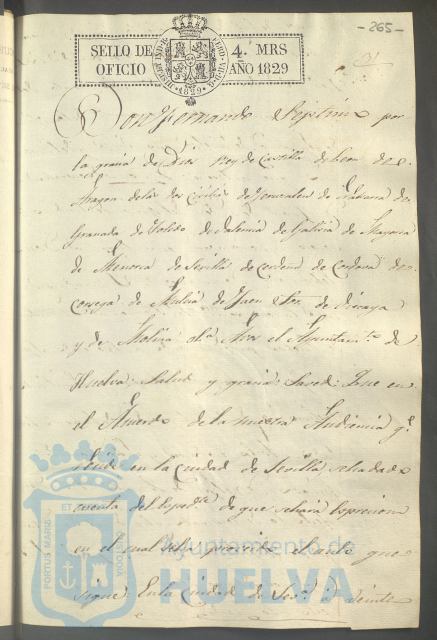 -265-
SELLO DE 4.º MRS
OFICIO AÑO 1829
Don Fernando Septimo por
la gracia de Dios Rey de Castilla de Leon de
Aragon de las dos Cicilias de Jerusalen de Navarra de
Granada de Toledo de Valencia de Galicia de Mayorca
de Menorca de Sevilla de Cerdeña de Cordova de
Corcega de Murcia de Jaen Sor. de Vizcaya
y de Molina &.ª A vos el Ayuntam.to de
Huelva: Salud y gracia: Saved: Que en
el Acuerdo de la nuestra Audiencia q.e
reside en la Ciudad de Sevilla se ha dado
cuenta del Esped.te de que se hará espresion
en el cual se ha proveido el auto que
sigue: En la Ciudad de Sev.a a veinte
Ayuntamiento de
HUELVA
PORTUS MARIS ET TERRÆ CUSTODIA